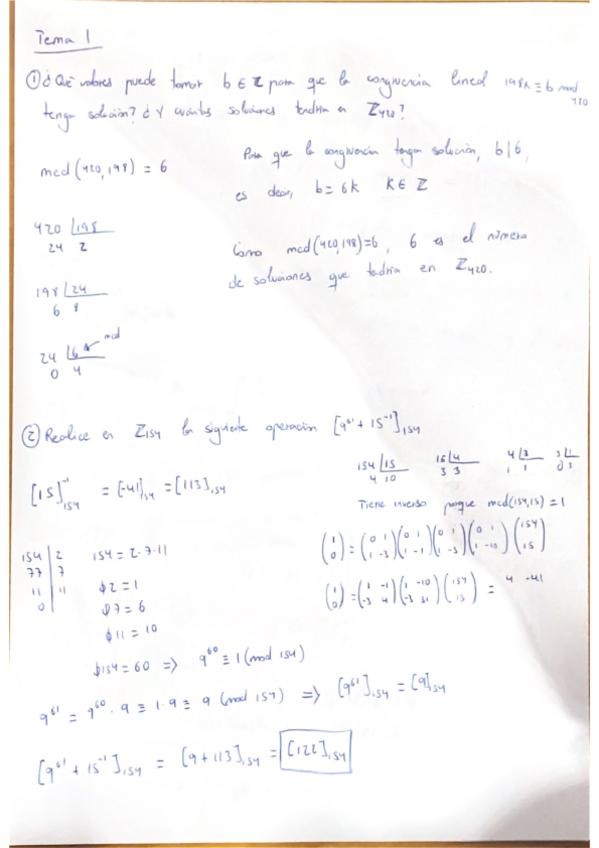 Tema 1
① ¿Qué valores puede tomar b ∈ Z para que la congruencia lineal 198x ≡ b mod 420
tenga solución? ¿Y cuántas soluciones tendría en Z₄₂₀?
mcd (420,198) = 6
Para que la congruencia tenga solución, b|6,
es decir, b = 6k k ∈ Z
420 |198
24 2
Como mcd(420,198)=6, 6 es el número
de soluciones que tendría en Z₄₂₀.
198 |24
6 8
24 |6 mcd
0 4
② Realice en Z₁₅₄ la siguiente operación [9⁶¹ + 15⁻¹]₁₅₄
154 |15 15 |4 4 |3 3 |1
4 10 3 3 1 1 0 3
[15]⁻¹₁₅₄ = [-41]₁₅₄ = [113]₁₅₄
Tiene inverso porque mcd(154,15) = 1
(1 0) = (0 1 1 -3)(0 1 1 -1)(0 1 1 -3)(0 1 1 -10)(154 15)
(1 0) = (1 -1 -3 4)(1 -10 -3 31)(154 15) = 4 -41
154 | 2
77 | 7
11 | 11
0
154 = 2·7·11
ϕ2 = 1
ϕ7 = 6
ϕ11 = 10
ϕ154 = 60 => 9⁶⁰ ≡ 1 (mod 154)
9⁶¹ = 9⁶⁰ · 9 ≡ 1·9 ≡ 9 (mod 154) => [9⁶¹]₁₅₄ = [9]₁₅₄
[9⁶¹ + 15⁻¹]₁₅₄ = [9 + 113]₁₅₄ = [122]₁₅₄